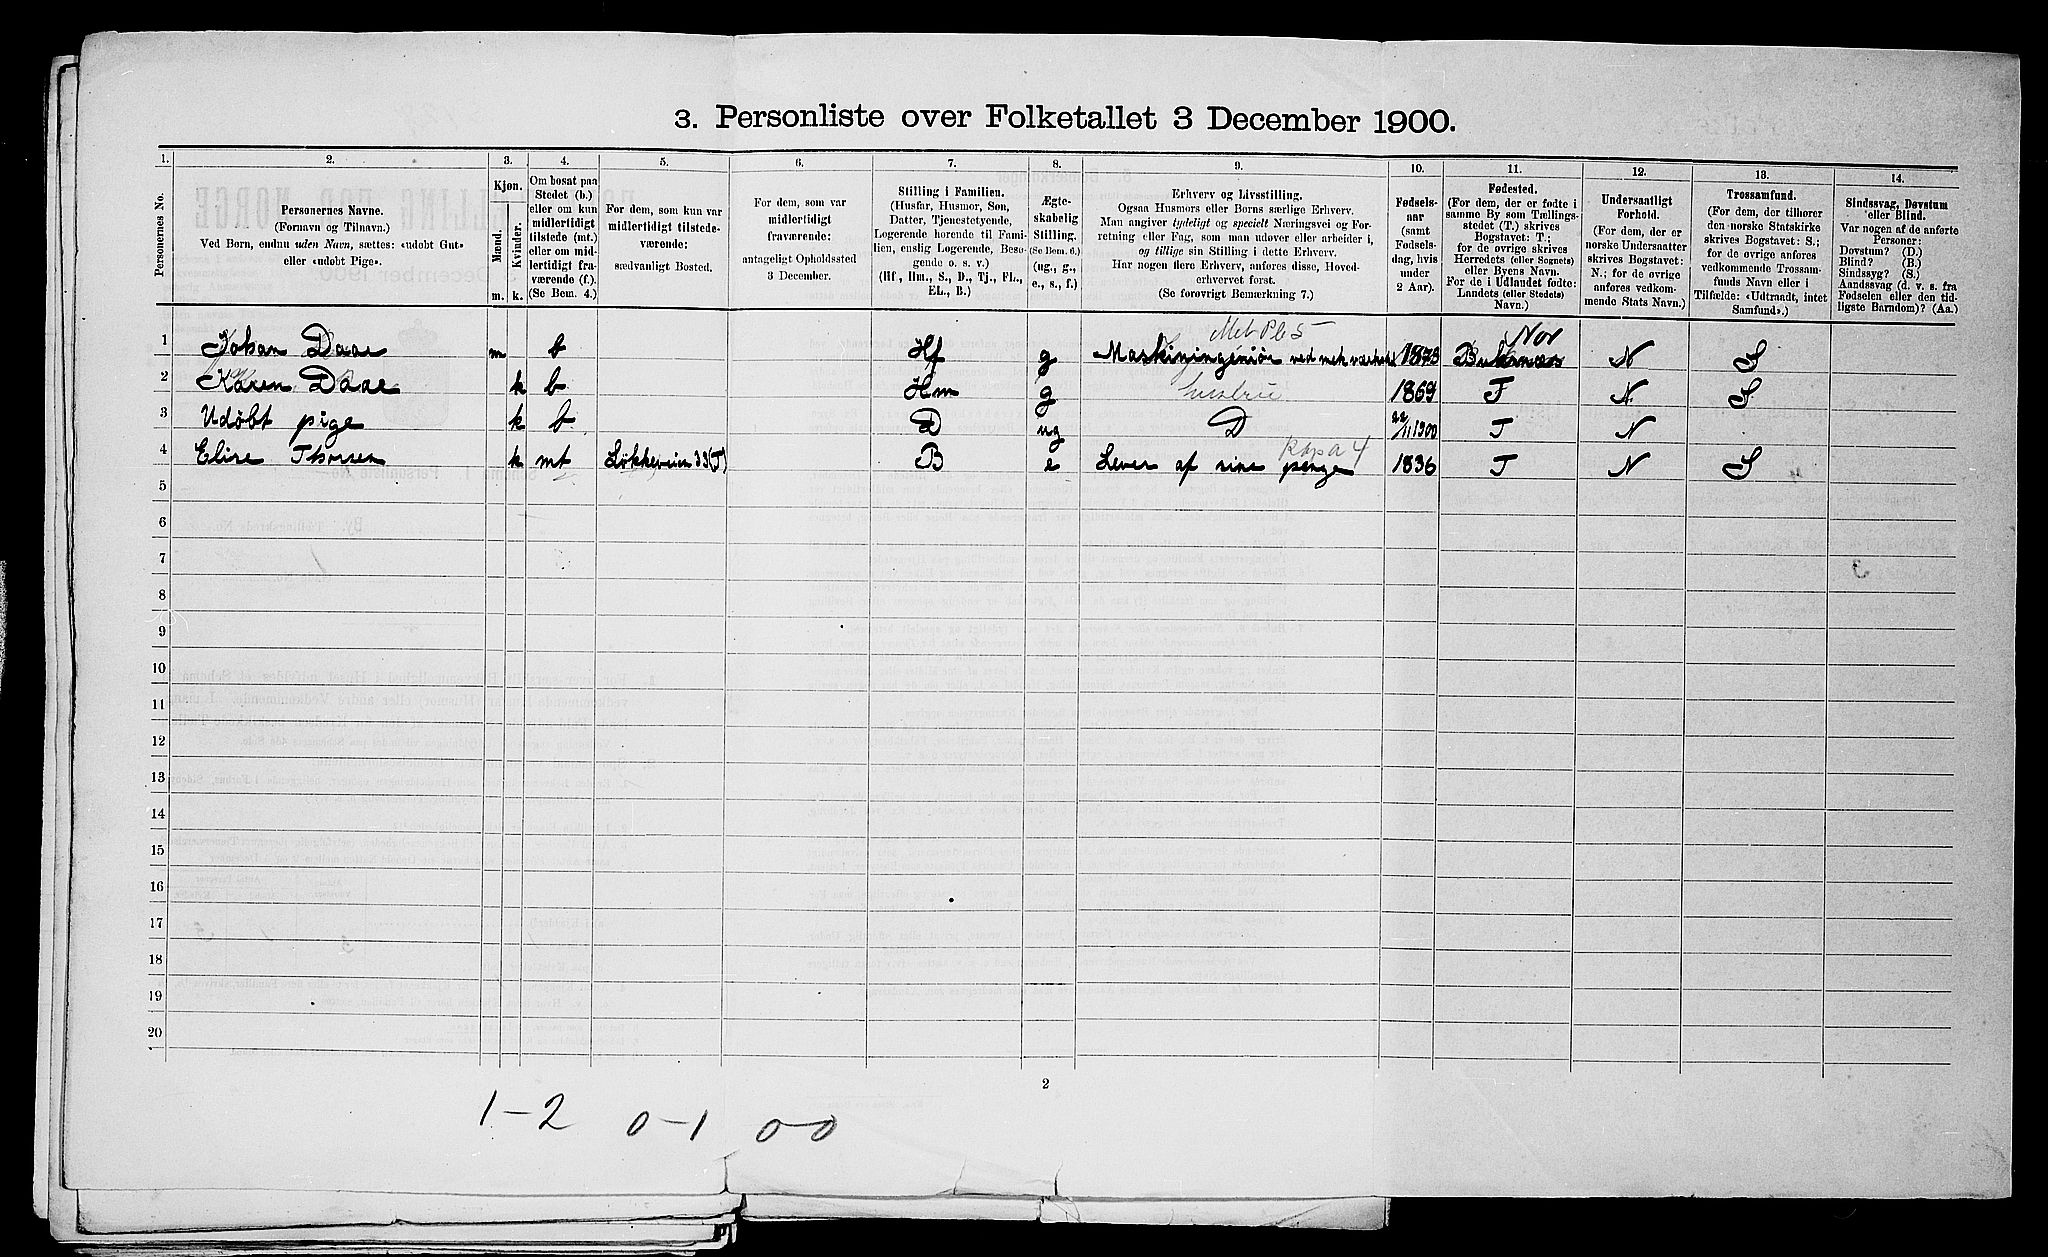 3. Personliste over Folketallet 3 December 1900.
1. 2. 3. 4. 5. 6. 7. 8. 9. 10. 11. 12. 13. 14.
Personernes No.
Personernes Navne.
(Fornavn og Tilnavn.)
Ved Børn, endnu uden Navn, sættes: «udøbt Gut»
eller «udøbt Pige».
Kjøn.
Mænd.
Kvinder.
m. k.
Om bosat paa
Stedet (b.)
eller om kun
midlertidigt
tilstede (mt.)
eller om mid-
lertidigt fra-
værende (f.).
(Se Bem. 4.)
For dem, som kun var
midlertidigt tilstede-
værende:
sædvanligt Bosted.
For dem, som var
midlertidigt
fraværende:
antageligt Opholdssted
3 December.
Stilling i Familien.
(Husfar, Husmor, Søn,
Datter, Tjenestetyende,
Logerende hørende til Fami-
lien, enslig Logerende, Besø-
gende o. s. v.)
(Hf, Hm., S., D., Tj., FL.,
EL., B.)
Ægte-
skabelig
Stilling.
(Se Bem. 6.)
(ug., g.,
e., s., f.)
Erhverv og Livsstilling.
Ogsaa Husmors eller Børns særlige Erhverv.
Man angiver tydeligt og specielt Næringsvei og For-
retning eller Fag, som man udøver eller arbeider i,
og tillige sin Stilling i dette Erhverv.
Har nogen flere Erhverv, anføres disse, Hoved-
erhvervet først.
(Se forøvrigt Bemærkning 7.)
Fødsels-
aar
(samt
Fødsels-
dag, hvis
under
2 Aar).
Fødested.
(For dem, der er fødte i
samme By som Tællings-
stedet (T.) skrives
Bogstavet: T.;
for de øvrige skrives
Herredets (eller Sognets)
eller Byens Navn.
For de i Udlandet fødte:
Landets (eller Stedets)
Navn.)
Undersaatligt
Forhold.
(For dem, der er
norske Undersaatter
skrives Bogstavet:
N.; for de øvrige
anføres vedkom-
mende Stats Navn.)
Trossamfund.
(For dem, der tilhører
den norske Statskirke
skrives Bogstavet: S.;
for de øvrige anføres
vedkommende Trossam-
funds Navn eller i
Tilfælde: «Udtraadt, intet
Samfund».)
Sindssvag, Døvstum
eller Blind.
Var nogen af de anførte
Personer:
Døvstum? (D.)
Blind? (B.)
Sindssyg? (S.)
Aandssvag (d. v. s. fra
Fødselen eller den tid-
ligste Barndom)? (Aa.)
Nor
1 Johan Daae m b Hf g Maskiningeniør ved mek værksted 1873 N S
2 Karen Daae k b Hm g 1869 T N S
3 Udøbt pige k b D ug D 22/11 1900 T N
Kapa 4
4 Elise Thorsen k mt Løkkeveien 33 (T) B e Lever af sine penge 1836 T N S
5
6
7
8
9
10
11
12
13
14
15
16
17
18
19
20
2
1-2 0-1 0-0